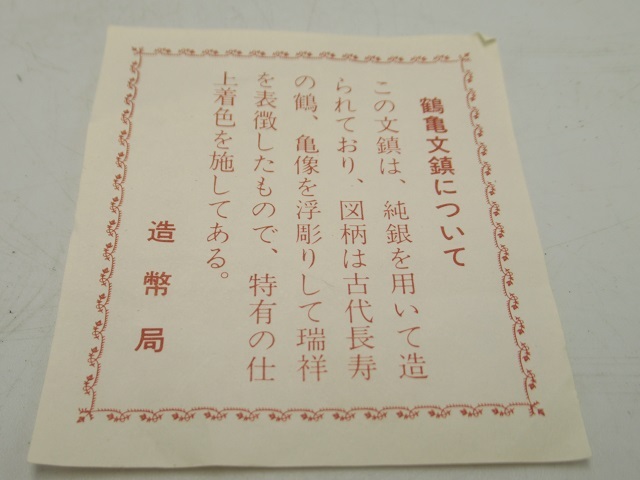 鶴亀文鎮について
この文鎮は、純銀を用いて造
られており、図柄は古代長寿
の鶴、亀像を浮彫りして瑞祥
を表徴したもので、特有の仕
上着色を施してある。
造幣局